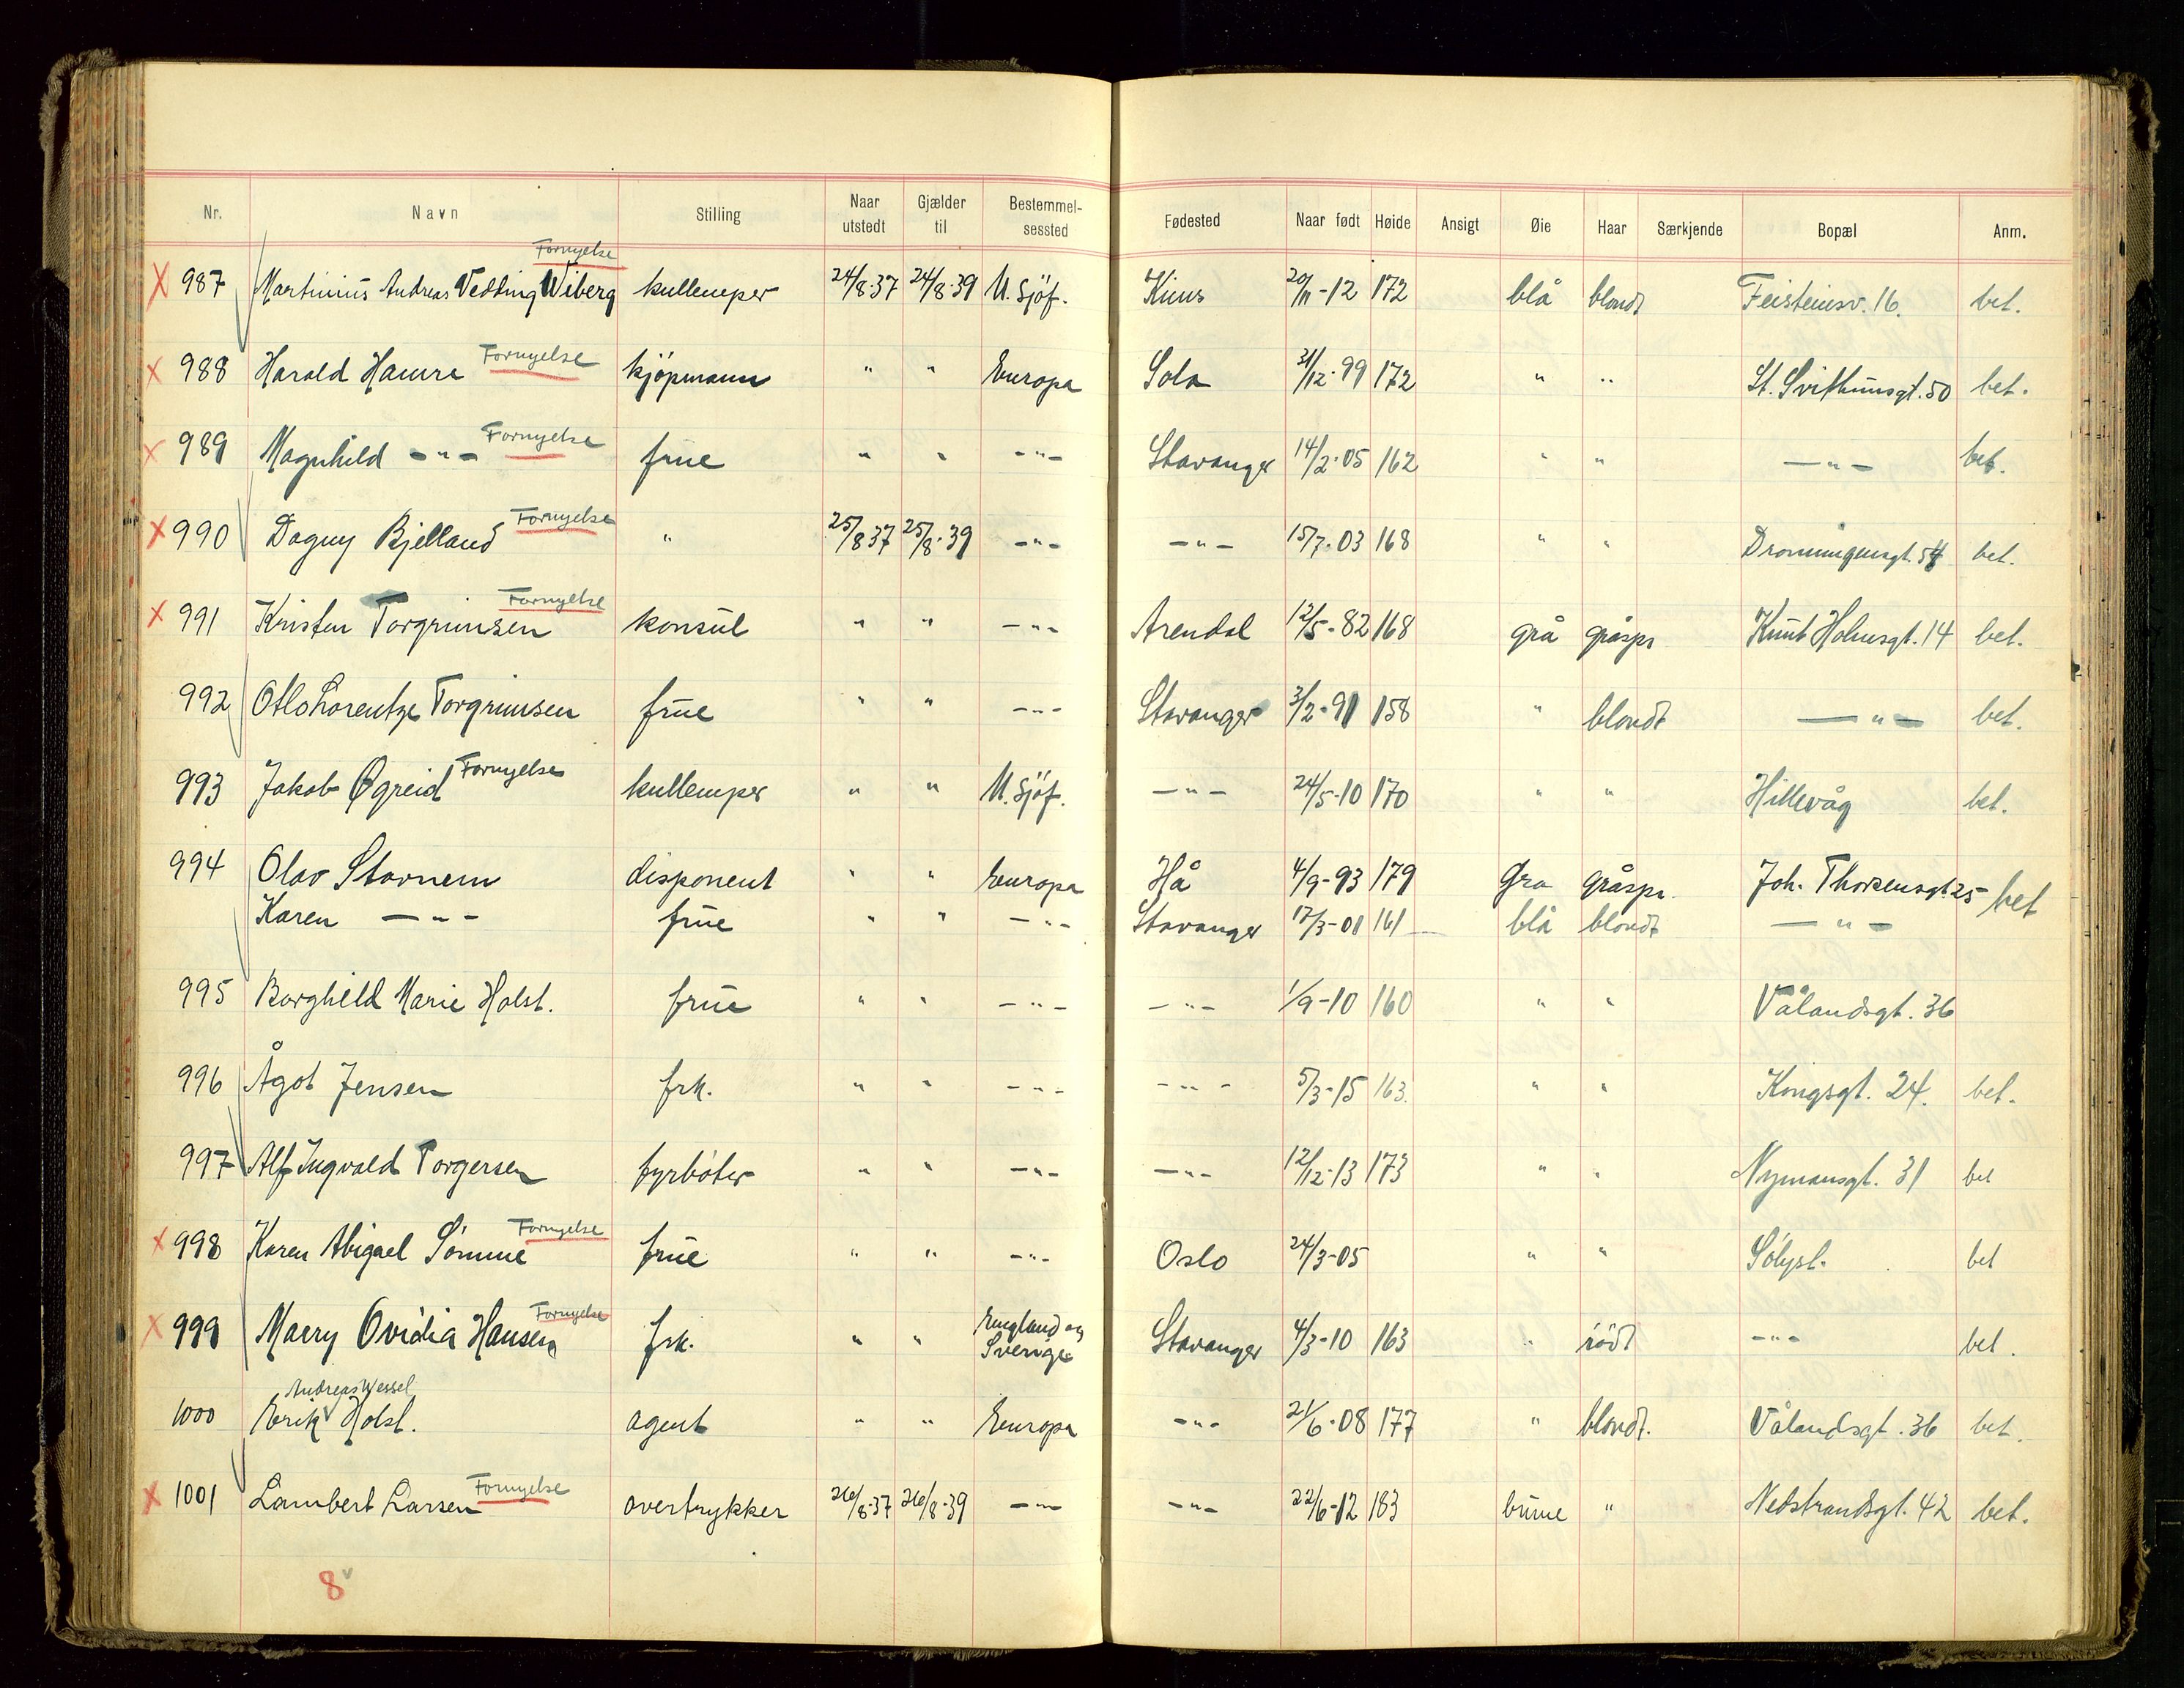 Nr. Navn Stilling Naar utstedt Gjælder til Bestemmelsessted Fødested Naar født Høide Ansigt Øie Haar Særkjende Bopæl Anm.
Fornyelse
X 987 Martinius Andreas Vedding Wiberg kullemper 24/8-37 24/8-39 U. Sjöf. Kinn 20/11-12 172 blå blondt Feisteinsv. 16. bet.
X 988 Harald Hamre Fornyelse kjöpmann " " Europa Sola 31/12-99 172 " " St. Svithunsgt. 50 bet.
X 989 Magnhild -"- Fornyelse frue " " -"- Stavanger 14/2-05 162 " " -"- bet.
X 990 Dagny Bjelland Fornyelse " 25/8 37 25/8-39 -"- -"- 15/7-03 168 " " Dronningensgt. 54 bet.
X 991 Kristen Torgrimsen Fornyelse konsul " " -"- Arendal 12/5-82 168 grå gråspr Knut Holmsgt. 14 bet.
992 Lorentze Torgrimsen frue " " -"- Stavanger 3/2-91 158 " blondt -"- bet.
993 Jakob Øgreid Fornyelse kullemper " " U. Sjöf. -"- 24/5-10 170 " " Hillevåg bet.
994 Olav Stavnem disponent " " Europa Hå 4/9-93 179 Gra gråspr. Joh. Thorsensgt 25 bet
Karen -"- frue " " -"- Stavanger 17/3-01 161 blå blondt -"-
995 Borghild Marie Holst. frue " " -"- -"- 1/9-10 160 " " Vålandsgt. 36
996 Ågot Jensen frk. " " -"- -"- 5/3-15 163. " " Kongsgt. 24. bet.
997 Alf Ingvald Torgersen fyrböter " " -"- -"- 12/12-13 173 " " Nymansgt. 31 bet
X 998 Karen Abigael Sömme Fornyelse frue " " -"- Oslo 24/3-05 " " Sölyst. bet
X 999 Marry Ovidia Hansen Fornyelse frk. " " England og Sverige Stavanger 4/3-10 163 " rödt -"- bet.
Andreas Wessel
1000 Erik Holst. agent " " Europa -"- 21/6-08 177 " blondt. Vålandsgt. 36 bet.
X 1001 Lambert Larsen Fornyelse overtrykker 26/8-37 26/8-39 -"- -"- 22/6-12 183 brune " Nedstrandsgt. 42 bet.
8